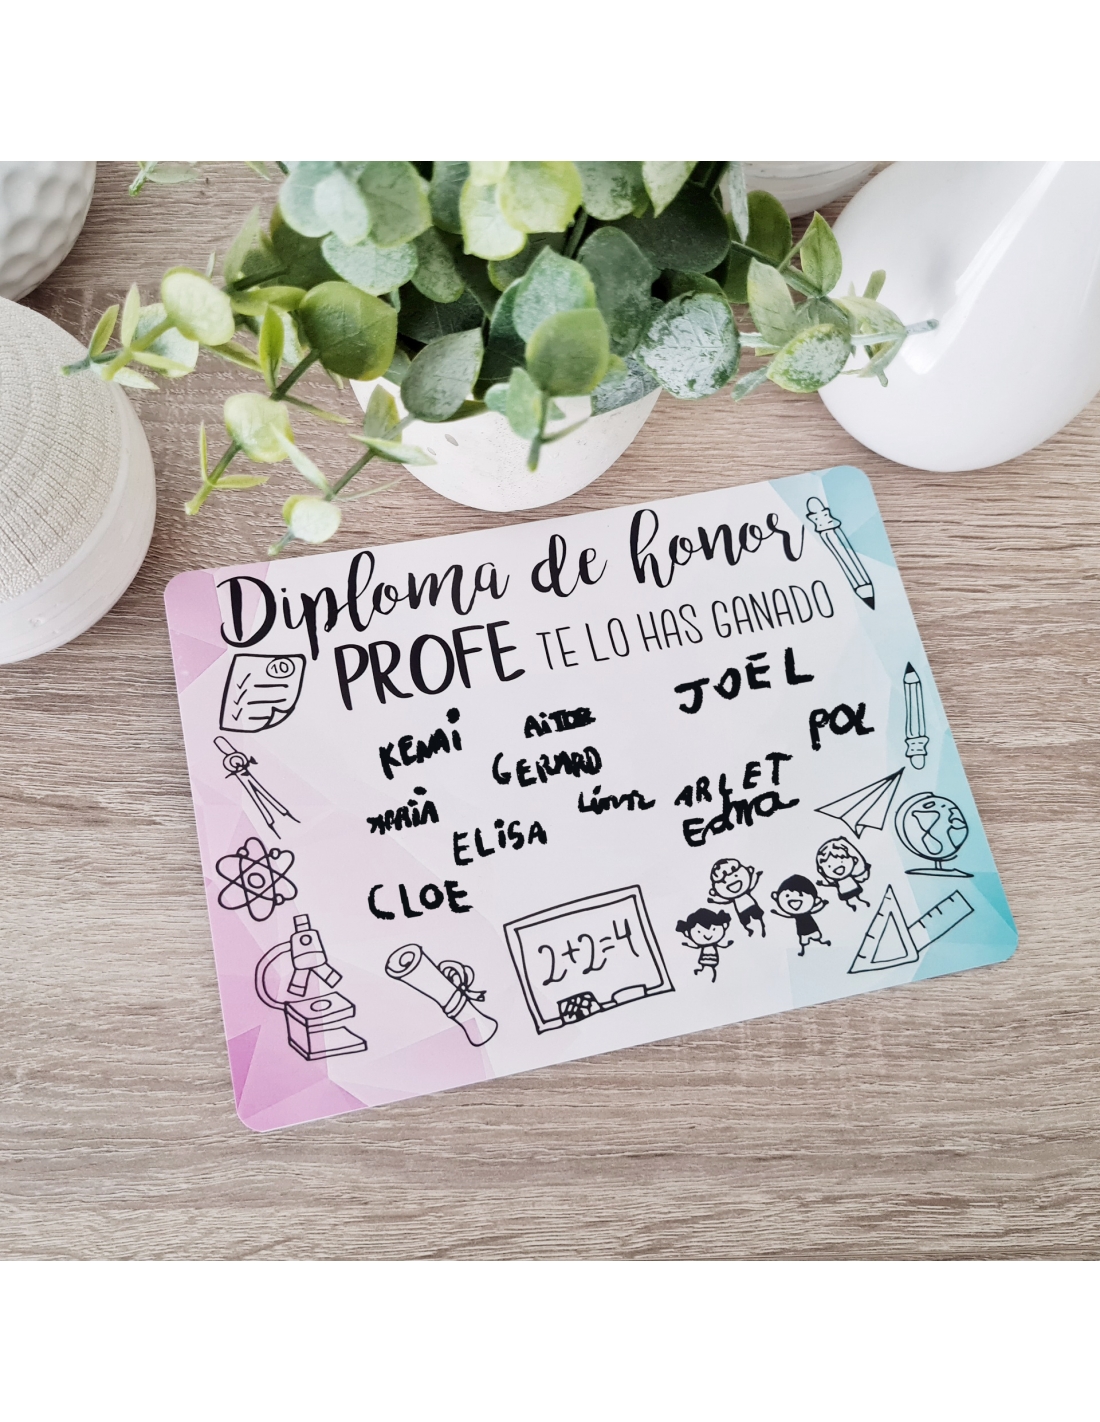 Diploma de honor
PROFE TE LO HAS GANADO
10
JOEL
KENAI
AiTOR
POL
GERARD
MARiA
ARLET
Edna
ELiSA
CLOE
2+2=4